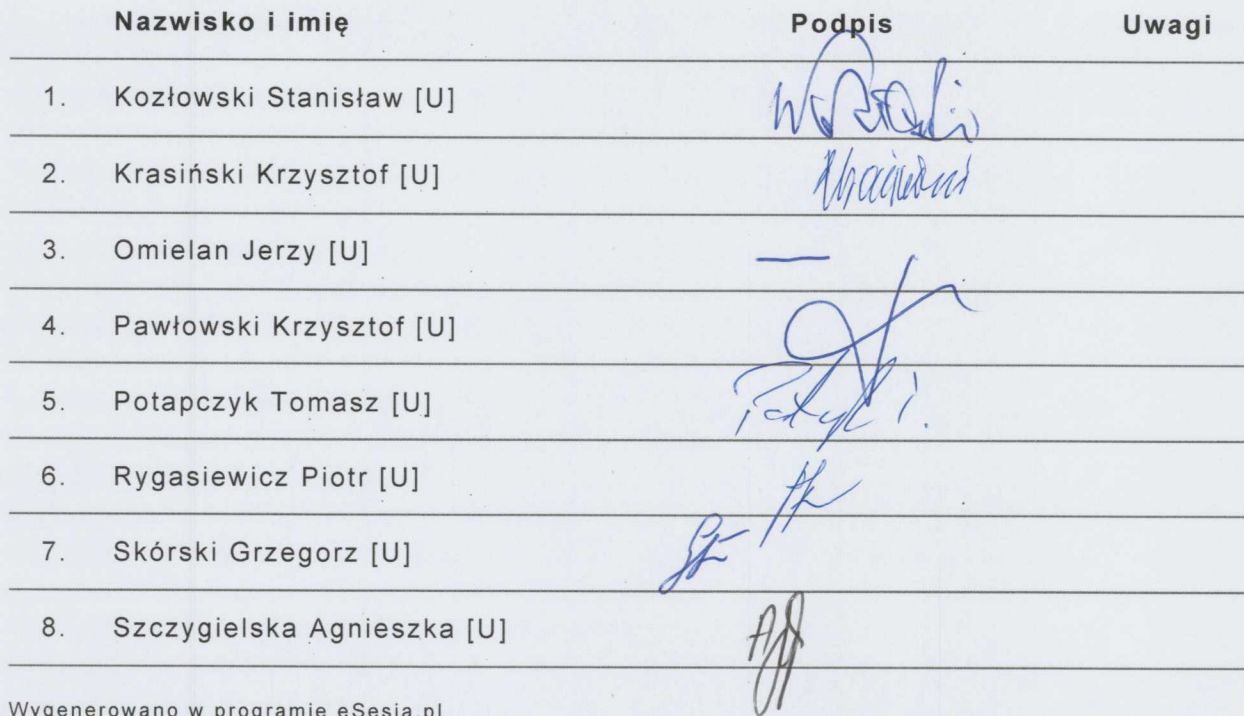 Nazwisko i imię Podpis Uwagi
1. Kozłowski Stanisław [U]
2. Krasiński Krzysztof [U]
3. Omielan Jerzy [U] —
4. Pawłowski Krzysztof [U]
5. Potapczyk Tomasz [U]
6. Rygasiewicz Piotr [U]
7. Skórski Grzegorz [U]
8. Szczygielska Agnieszka [U]
Wygenerowano w programie eSesja.pl